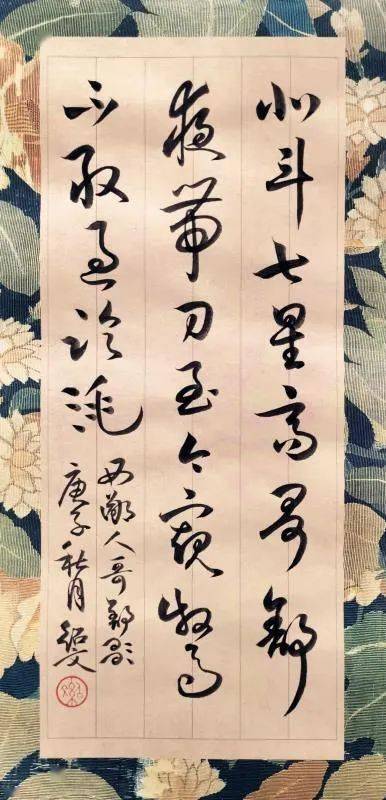 北斗七星高哥舒
夜帶刀至今窺牧馬
不敢過臨洮
西鄙人哥舒歌
庚子秋月